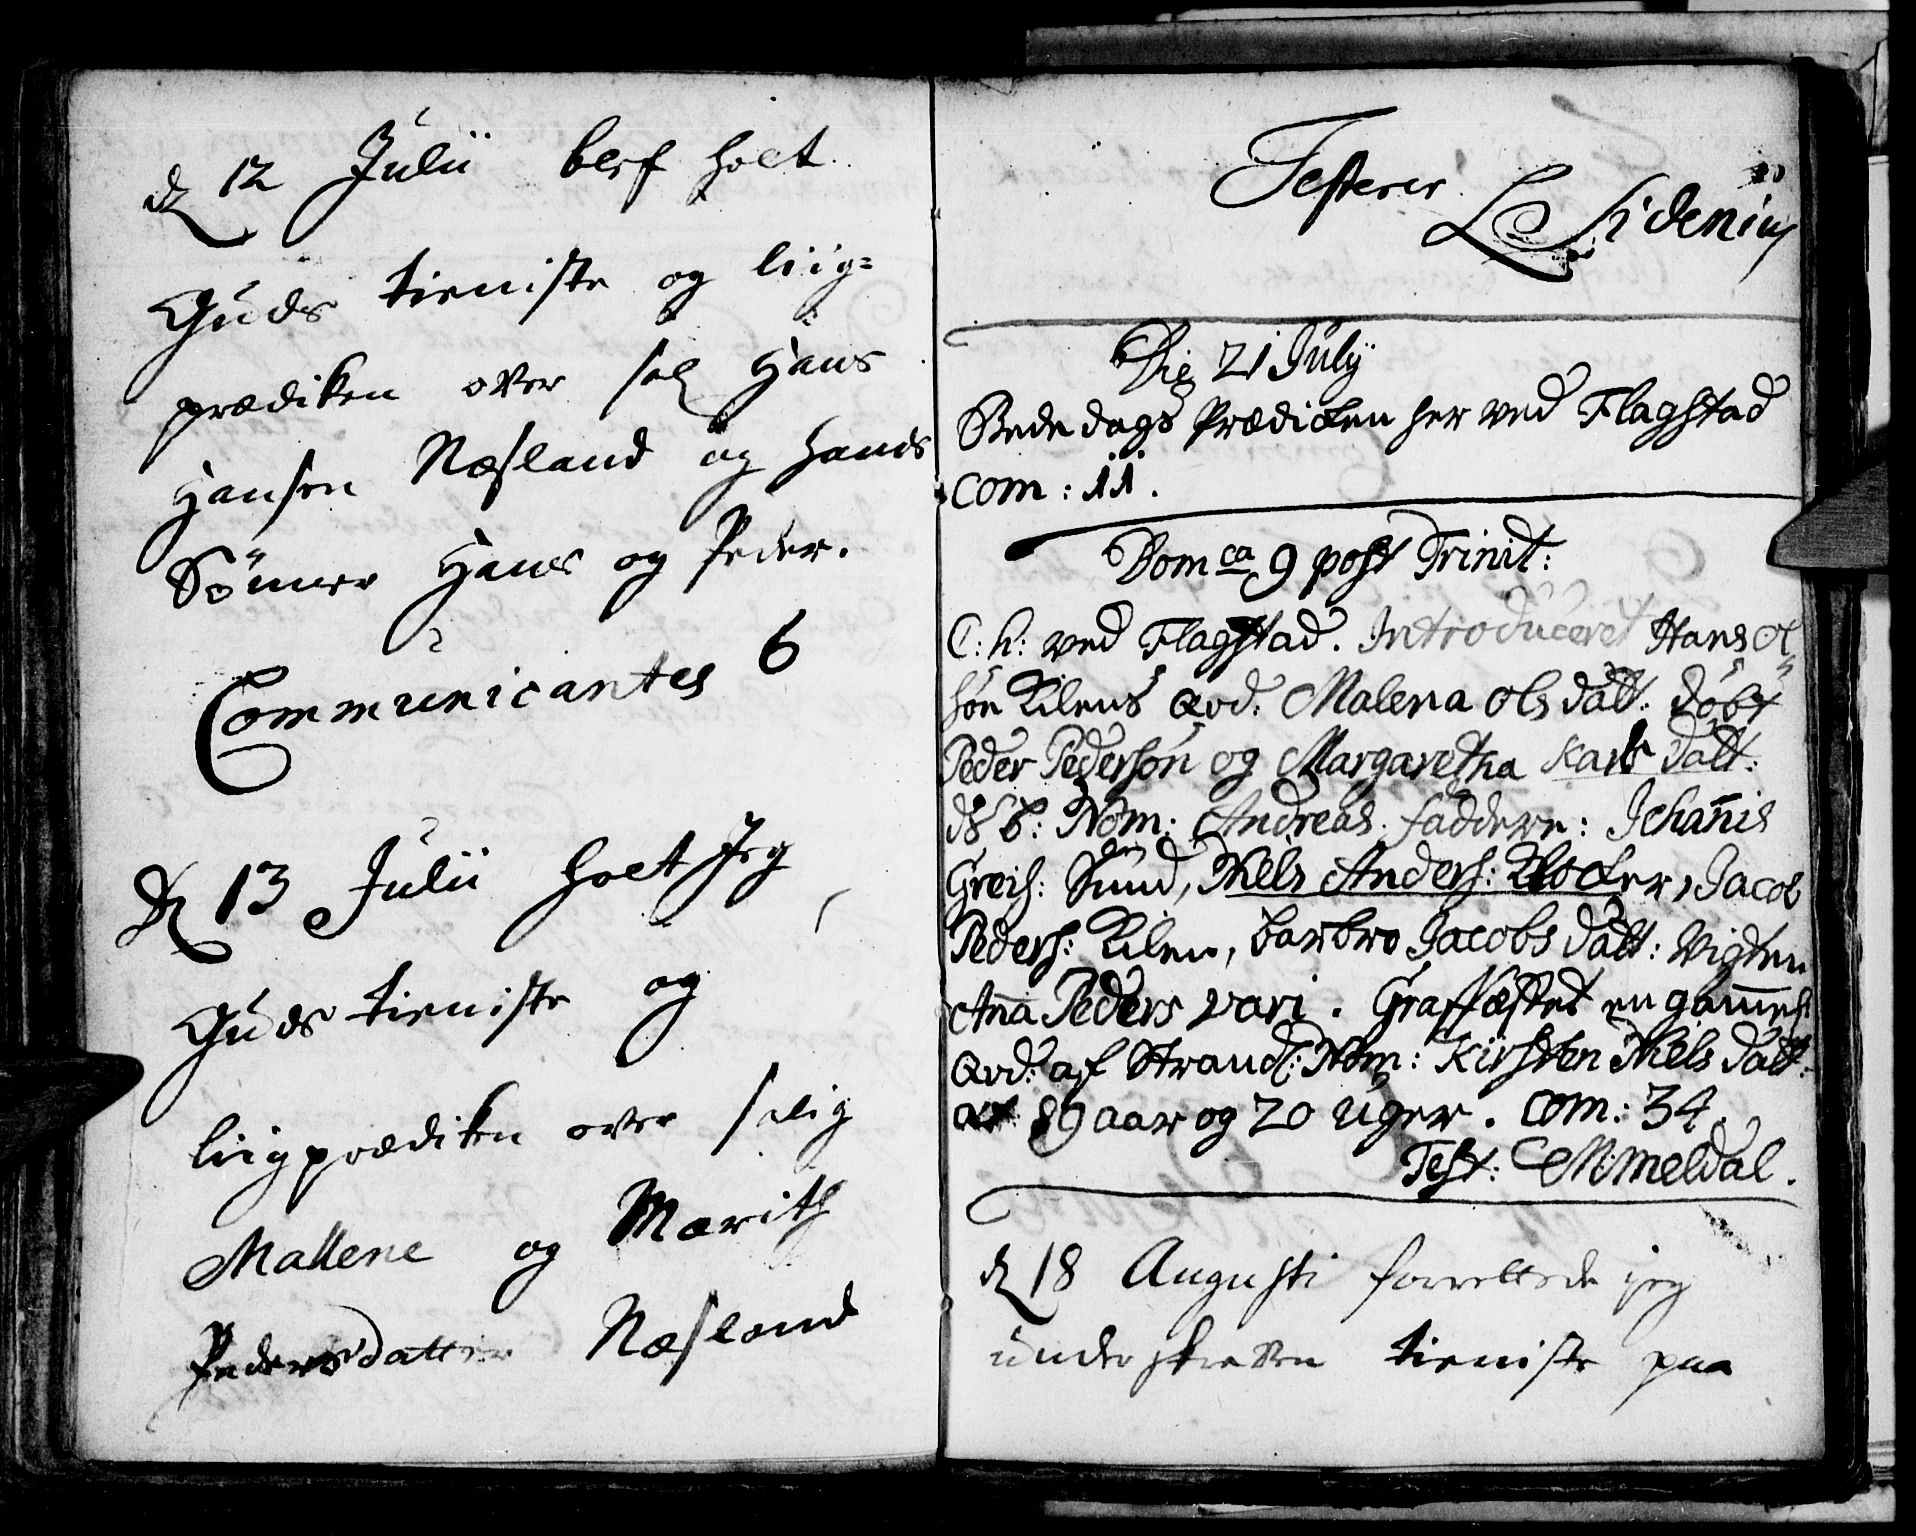 d 12 Julii blef holt
Guds tieniste og liig=
prædiken over sal Hans
Hansen Næsland og hands
Sönner Hans og Peder.
Communicantes 6
d 13 Julii holt Jeg
Guds tieniste og
liigprædiken over salig
Mallene og Marith
Pedersdatter Næsland
Testerer L Sidenius
Die 21 July
Bededags Prædicken her ved Flagstad
Com: 11.
Domca 9 post Trinit:
C: h: ved Flagstad. Introduceret Hans Ol
søn Kilens Qvd: Malena Olsdatt: døbt
Peder Pedersøn og Margaretha Karlsdatt:
ds b: Nom: Andreas. faddere: Johannis
Greis: Sund, Niels Anders: Klocker, Jacob
Peders: Kilen, barbro Jacobsdatt: Vigten
Anna Peders Vari. Graffæstet en gammel
Qvd: af Strand: Nom: Kirsten Nielsdatt:
89 aar og 20 Uger. Com: 34.
Test: M: Meldal.
d 18 Augusti forrettede jeg
underskreven tieniste paa